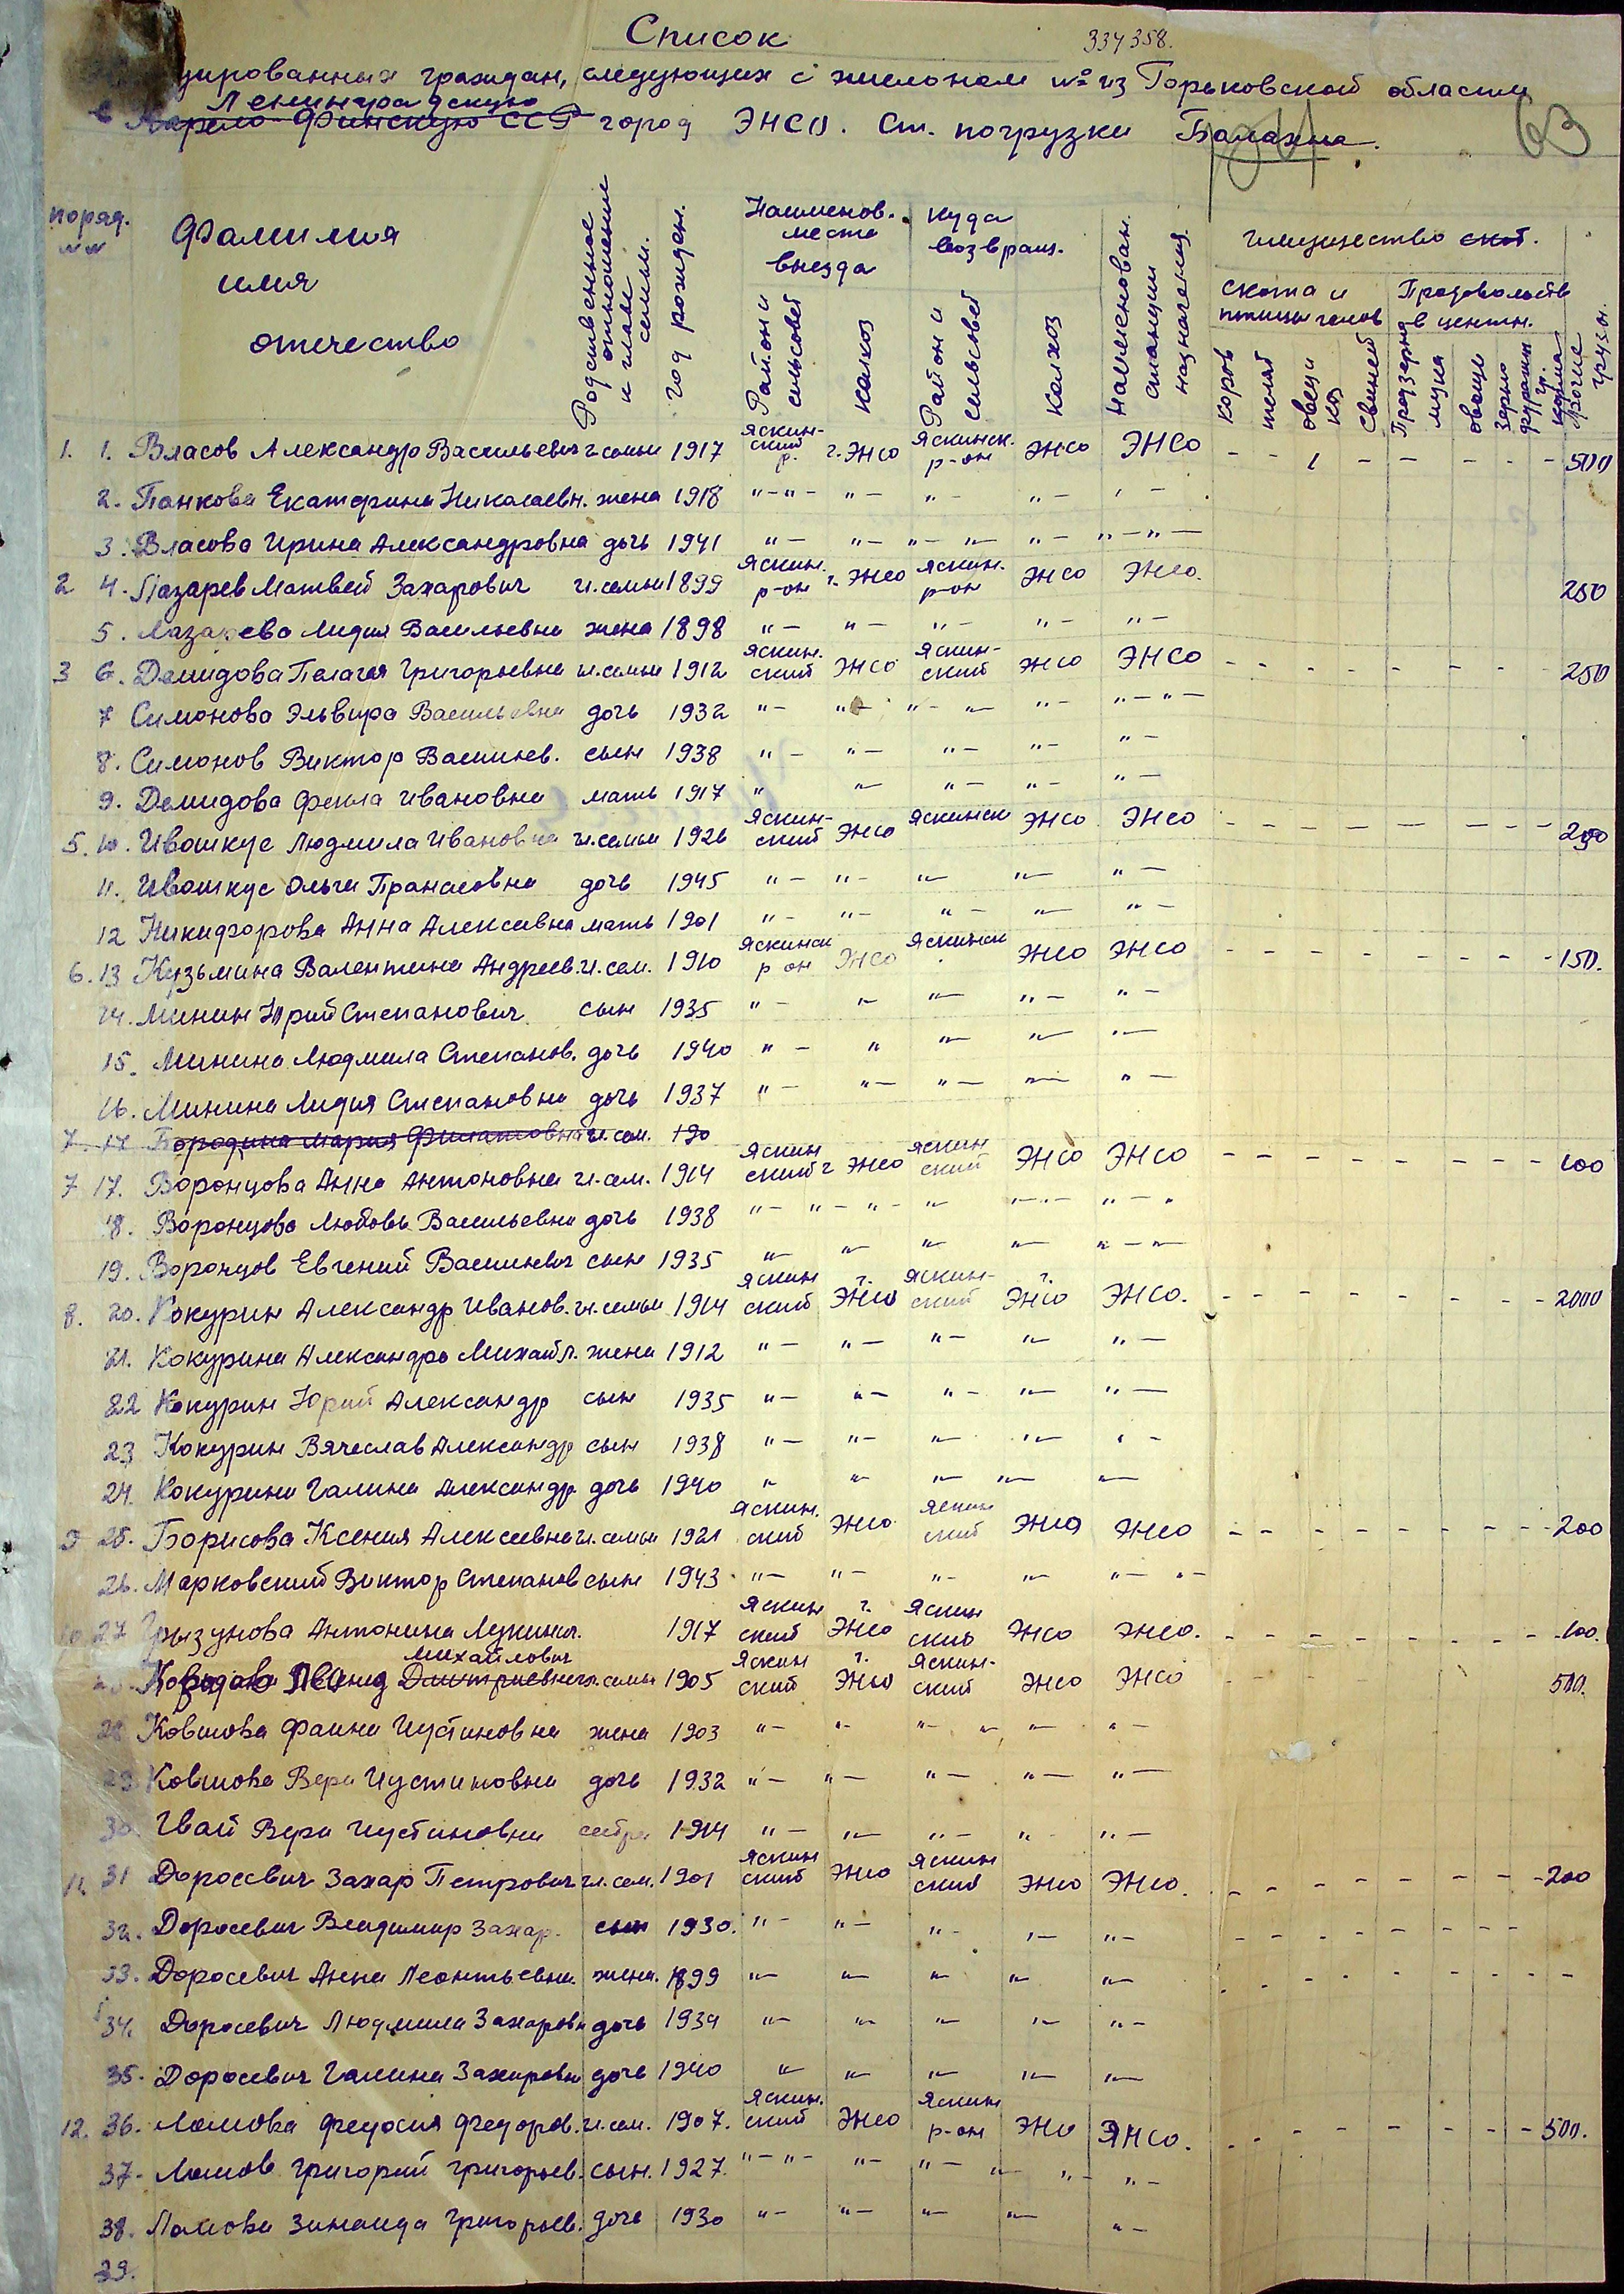 Список
334358.
уированных граждан, следующих с эшелоном № из Горьковской области
Ленинградскую
в Карело-Финскую ССР город ЭНСО. Ст. погрузки Балахна.
63
поряд. №№
Фамилия имя отчество
Родственное отношение к главе семьи.
год рожден.
Наименов. места выезда
куда возвращ.
Район и сельсовет
колхоз
Район и сельсовет
колхоз
Наименован. станции назначения
имущество скот.
скота и птицы голов
Продовольств в центн.
коров
телят
овец и коз
свиней
Продзерно
мука
овощи
Зерно фуражн
прочие грузы.
1. 1. Власов Александр Васильевич г. семьи 1917 Яскин-ский р. г. ЭНСО Яскинск. р-он ЭНСО ЭНСО - - 1 - - - - - 500
2. Панкова Екатерина Николаевн. жена 1918 "-"- "- "- "- "-
3. Власова Ирина Александровна дочь 1941 "- "- "- "- "- "-"-
2 4. Лазарев Матвей Захарович гл. семьи 1899 Яскин. р-он г. ЭНСО Яскин. р-он ЭНСО ЭНСО. 250
5. Лазарева Лидия Васильевна жена 1898 "- "- "- "- "-
3 6. Демидова Пелагея Григорьевна гл. семьи 1912 Яскин. ский ЭНСО Яскин-ский ЭНСО ЭНСО - - - - - - - - 250
7 Симонова Эльвира Васильевна дочь 1932 "- "- "- "- "- "-"-
8. Симонов Виктор Васильев. сын 1938 "- "- "- "- "-
9. Демидова Фекла Ивановна мать 1917 " "- "- "- "-
5. 10. Ивошкус Людмила Ивановна гл. семьи 1926 Яскин-ский ЭНСО Яскинск ЭНСО ЭНСО - - - - - - - - 200
11. Ивошкус Ольга Пранасовна дочь 1945 "- "- "- "- "-
12 Никифорова Анна Алексеевна мать 1901 "- "- "- "- "-
6. 13 Кузьмина Валентина Андреев. гл. сем. 1910 Яскинск р-он ЭНСО Яскинск ЭНСО ЭНСО - - - - - - - - 150.
14. Минин Юрий Степанович сын 1935 "- "- "- "- "-
15. Минина Людмила Степанов. дочь 1940 "- " "- "- "-
16. Минина Лидия Степановна дочь 1937 "- "- "- "- "-
7. 17 Бородина Мария Филатовна гл. сем. 190
7 17. Воронцова Анна Антоновна гл. сем. 1914 Яскин ский г ЭНСО Яскин ский ЭНСО ЭНСО - - - - - - - - 100
18. Воронцова Любовь Васильевна дочь 1938 "- "- "- "- "-"- "- "
19. Воронцов Евгений Васильевич сын 1935 "- "- "- "- "-"-
8. 20. Кокурин Александр Иванов. гл. семьи 1914 Яскин ский г. ЭНСО Яскин-ский г. ЭНСО ЭНСО. - - - - - - - - 2000
21. Кокурина Александра Михайл. жена 1912 "- "- "- "- "-
22 Кокурин Юрий Александр сын 1935 "- "- "- "- "-
23 Кокурин Вячеслав Александр сын 1938 "- "- "- "- "-
24. Кокурина Галина Александр дочь 1940 " "- "- "- "-
9 25. Борисова Ксения Алексеевна гл. семьи 1921 Яскин. ский ЭНСО Яскин ский ЭНСО ЭНСО - - - - - - - - 200
26. Марковский Виктор Степанов сын 1943 "- "- "- "- "- "-
10 27 Грызунова Антонина Лукинич. 1917 Яскин ский г. ЭНСО Яскин ский ЭНСО ЭНСО. - - - - - - - - 100.
Михайлович
Леонид Дмитриевич гл. семьи 1905 Яскин ский г. ЭНСО Яскин-ский ЭНСО ЭНСО - - - - 500.
28 Ковшова Фаина Иустиновна жена 1903 "- "- "- "- "- "-
29 Ковшова Вера Иустиновна дочь 1932 "- "- "- "- "-
30 Гвай Вера Иустиновна сестра 1914 "- "- "- "- "-
11. 31 Доросевич Захар Петрович гл. сем. 1901 Яскин ский ЭНСО Яскин ский ЭНСО ЭНСО. - - - - - - - - 200
32. Доросевич Владимир Захар. сын 1930. "- "- "- "- "- - - - - - - - -
33. Доросевич Анна Леонтьевна жена. 1899 "- "- "- "- "- - - - - - - - - -
34. Доросевич Людмила Захаровн дочь 1934 "- "- "- "- "-
35. Доросевич Галина Захаровн дочь 1940 "- "- "- "- "-
12. 36. Ломова Федосия Федоров. гл. сем. 1907. Яскин. ский ЭНСО Яскин р-он ЭНСО ЭНСО. - - - - - - - - 500.
37. Ломов Григорий Григорьев. сын. 1927. "-"- "- "- "- "- "-
38. Ломова Зинаида Григорьев. дочь 1930 "- "- "- "- "-
39.